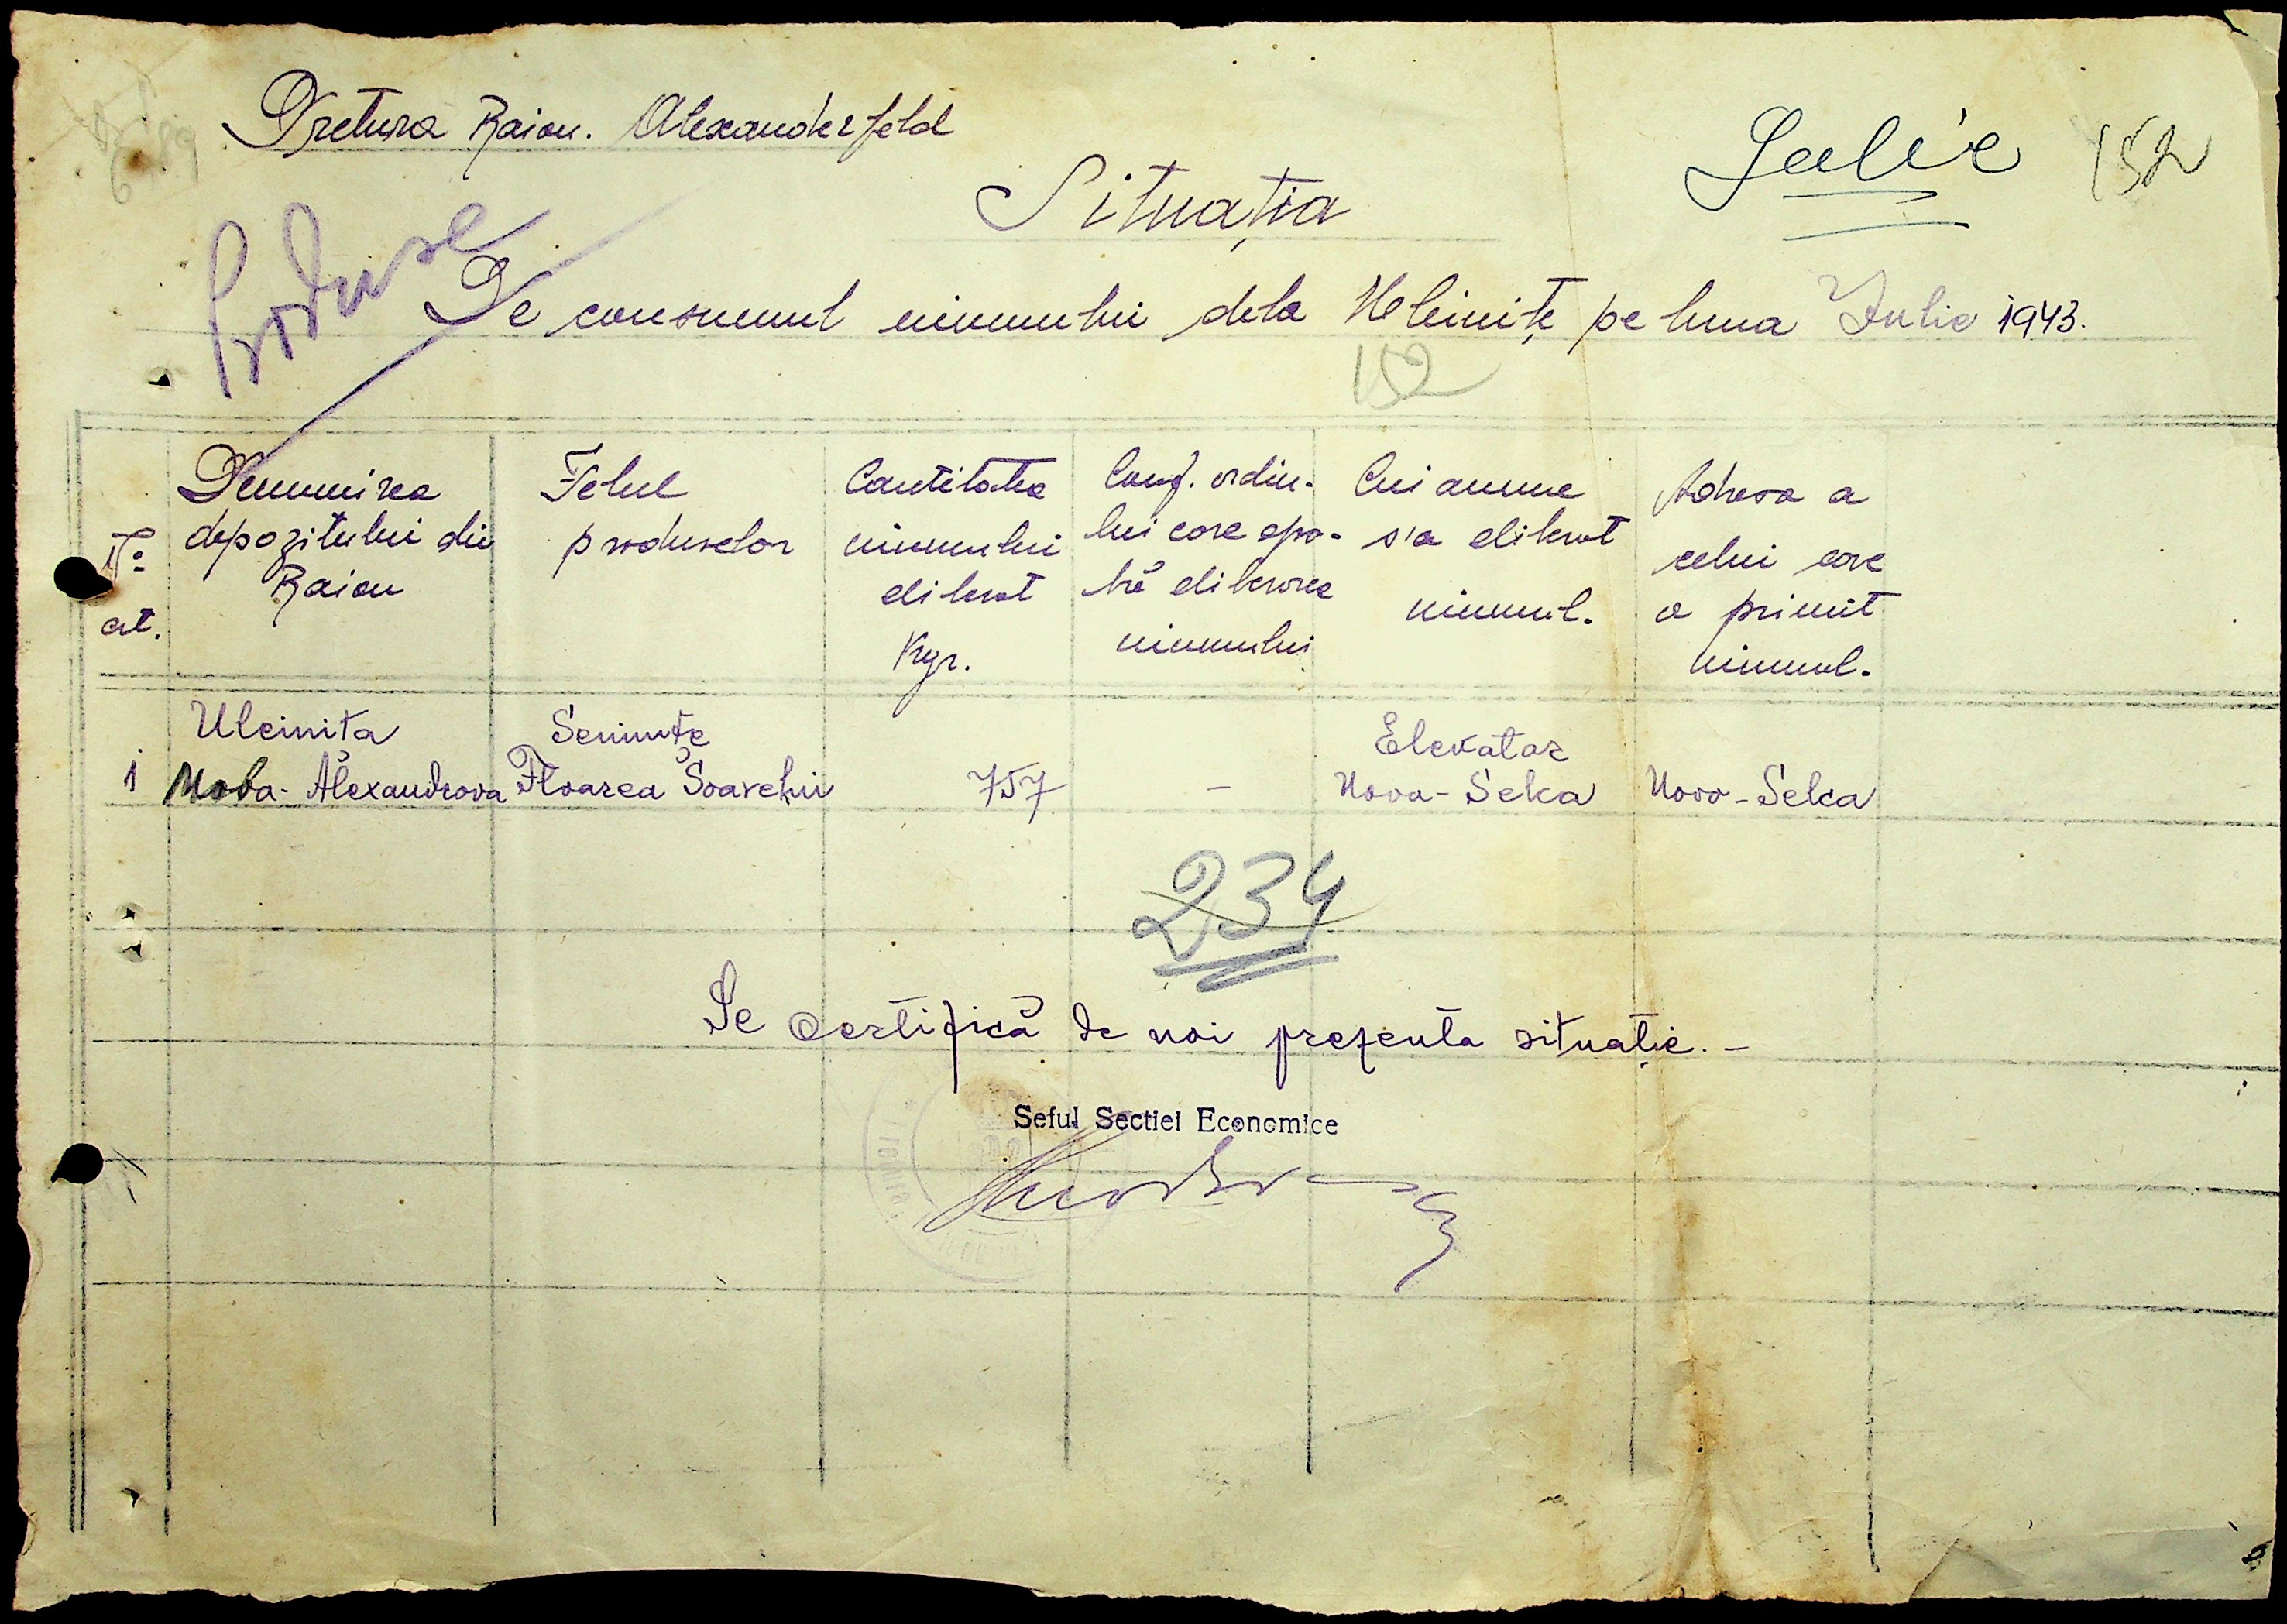 Pretura Raion. Alexanderfeld
Iulie 152
Situația
Produse
De consumul uiumului dela Uleinițe pe luna Iulie 1943.
152
No
crt.
Denumirea
depozitului din
Raion
Felul
produselor
Cantitatea
uiumului
eliberat
Kgr.
Conf. ordin-
lui care apro-
bă eliberarea
uiumului
Cui anume
s'a eliberat
uiumul.
Adresa a
celui care
a primit
uiumul.
1
Uleinita
Nova-Alexandrova
Seminte
Floarea Soarelui
757
-
Elevator
Nova-Selca
Novo-Selca
234
Se certifică de noi prezenta situație.-
Seful Sectiei Economice